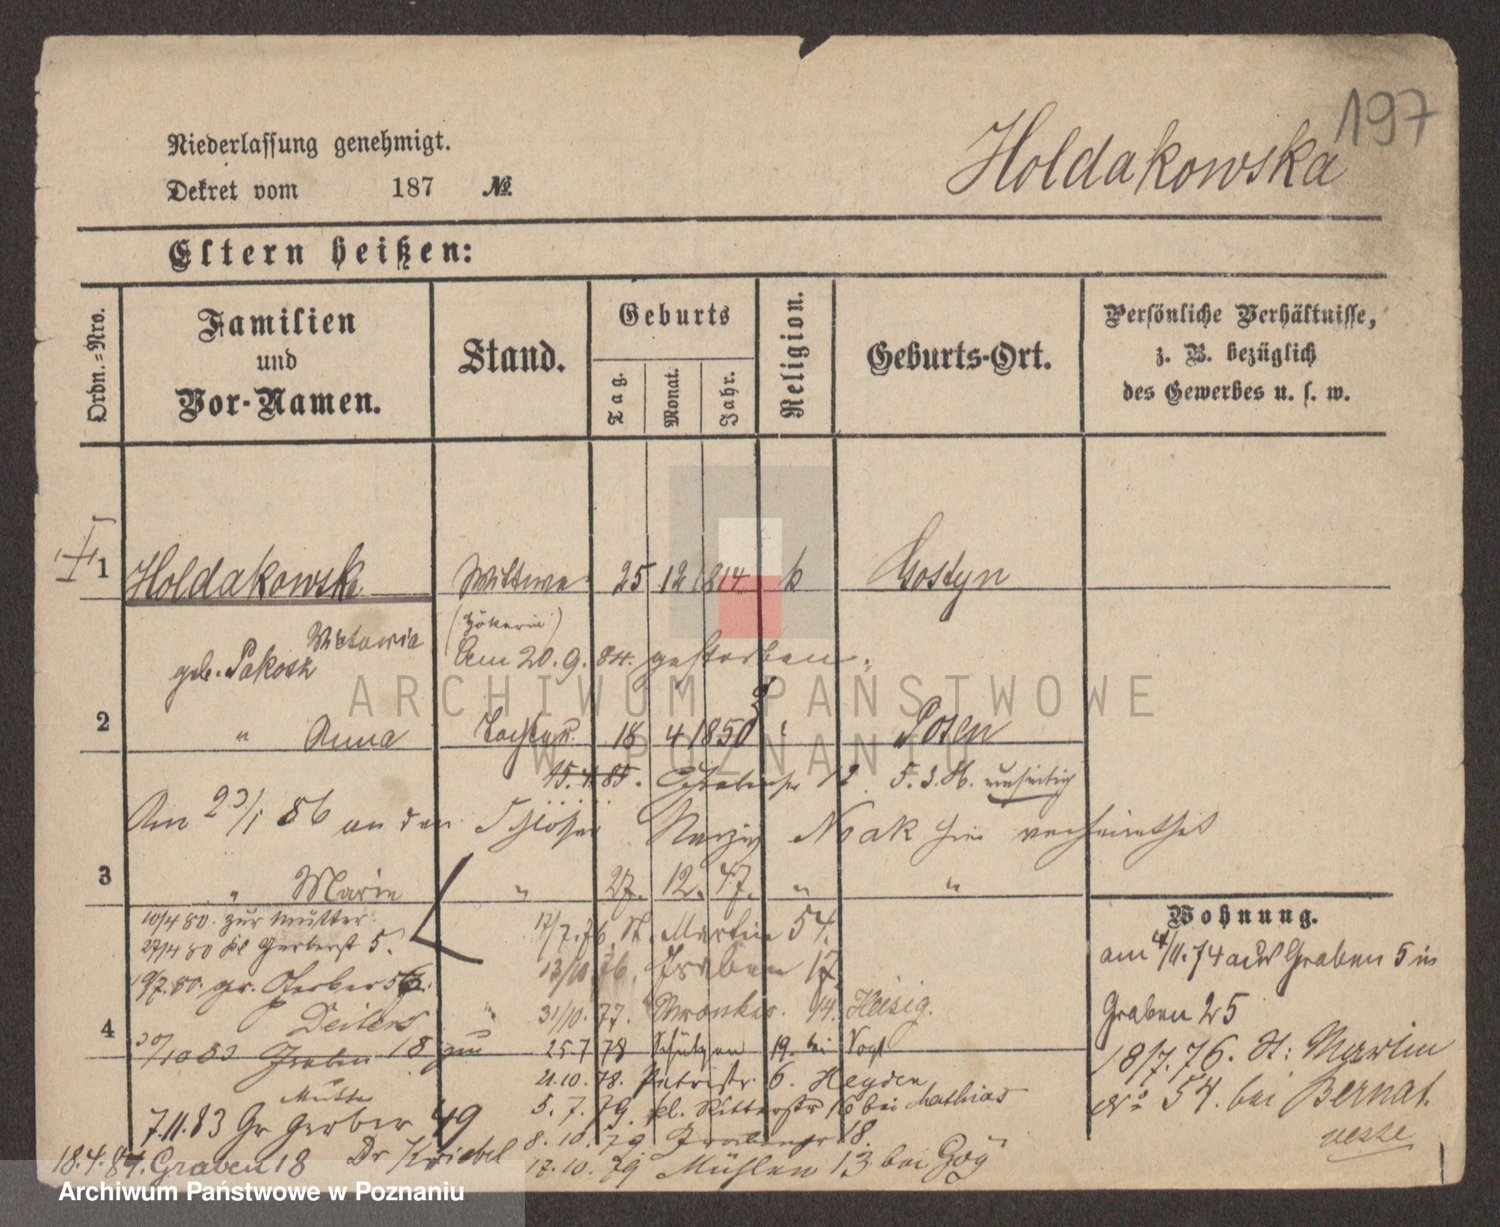 197
Holdakowska
Niederlassung genehmigt.
Dekret vom 187 №
Eltern heißen:
Ordn.=Nro.
Familien
und
Vor-Namen.
Stand.
Geburts
Tag.
Monat.
Jahr.
Religion.
Geburts-Ort.
Persönliche Verhältnisse,
z. B. bezüglich
des Gewerbes u. s. w.
1 Holdakowsk Wittwe 25 12 1814 k Gostyn
Victoria (Hökerin)
geb. Pakosz Am 20. 9. 84. gestorben.
ARCHIWUM PAŃSTWOWE
W POZNANIU
2 " Anna Tochter 18 4 1850 " Posen
15. 4. 85. 12
Am 23/1 86 an den Noak hier verheirathet
3 " Marie " 27. 12. 47. " "
10/4 80. zur Mutter.
27/4 80 kl Gerberst 5.
19/7. 80. gr. Gerber 56.
Deiters
4 30/10 83 Graben 18 zur
Mutter
7.11.83 Gr Gerber 49
18.4.84. Graben 18 Dr Kriebel
17/7. 76. St. Martin 54.
13/10 76. Graben 17
31/10. 77. Wronker. 14. Heisig.
25.7 78 Schützen 19. bei Vogt
21.10. 78. Petristr. 6. Heyden
5. 7. 79. kl. Ritterstr 16 bei Mathias
8. 10. 79 Grabenstr 18.
17. 10. 79 Mühlen 13 bei
Wohnung.
am 4/11. 74 aus Graben 5 in
Graben 25
18/7. 76. St: Martin
No 54. bei Bernat.
Archiwum Państwowe w Poznaniu